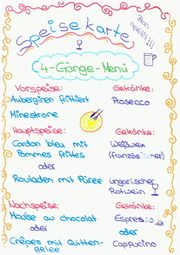 Speisekarte
Bon Appetit!!!
4-Gänge-Menü
Vorspeise: Getränke:
Auberginen frittiert Prosecco
Minestrone
Hauptspeise: Getränke:
Cordon bleu mit Weißwein
Pommes frittes (französischer)
oder oder
Rouladen mit Püree ungarischer
Rotwein
Nachspeise: Getränke:
Mousse au chocolat Espresso
oder oder
Crêpes mit Quitten- Cappucino
gelee